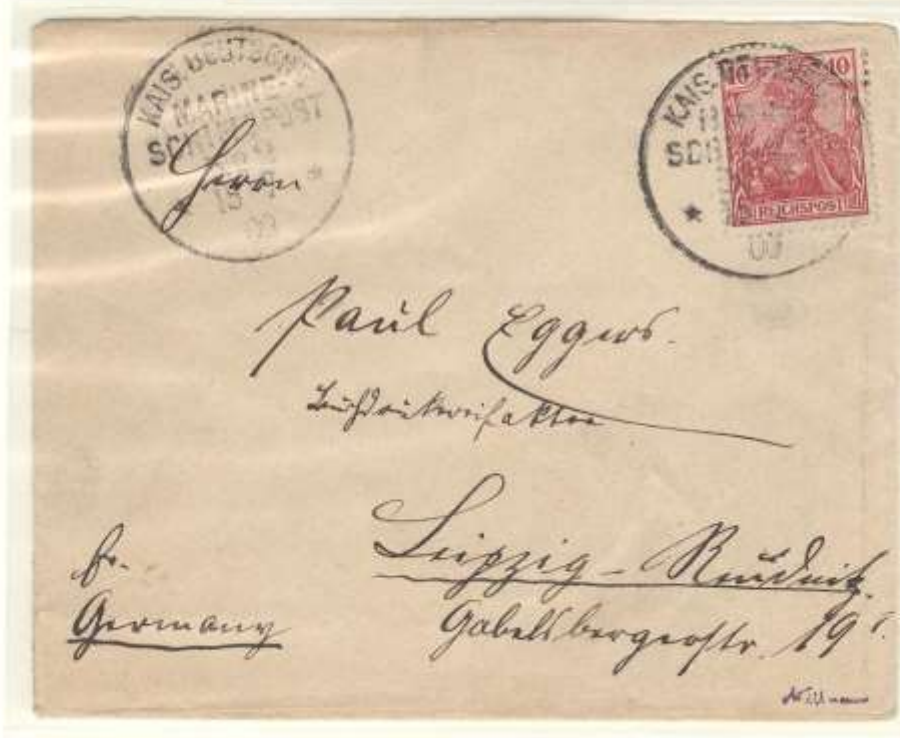 KAIS. DEUTSCHE
MARINE-
SCHIFFSPOST
15
09
KAIS. DE
SCH
10 10
REICHSPOST
Herrn
Paul Eggers.
Buchdruckereifaktor
Leipzig - Reudnitz.
Gabelsbergerstr. 19
Germany